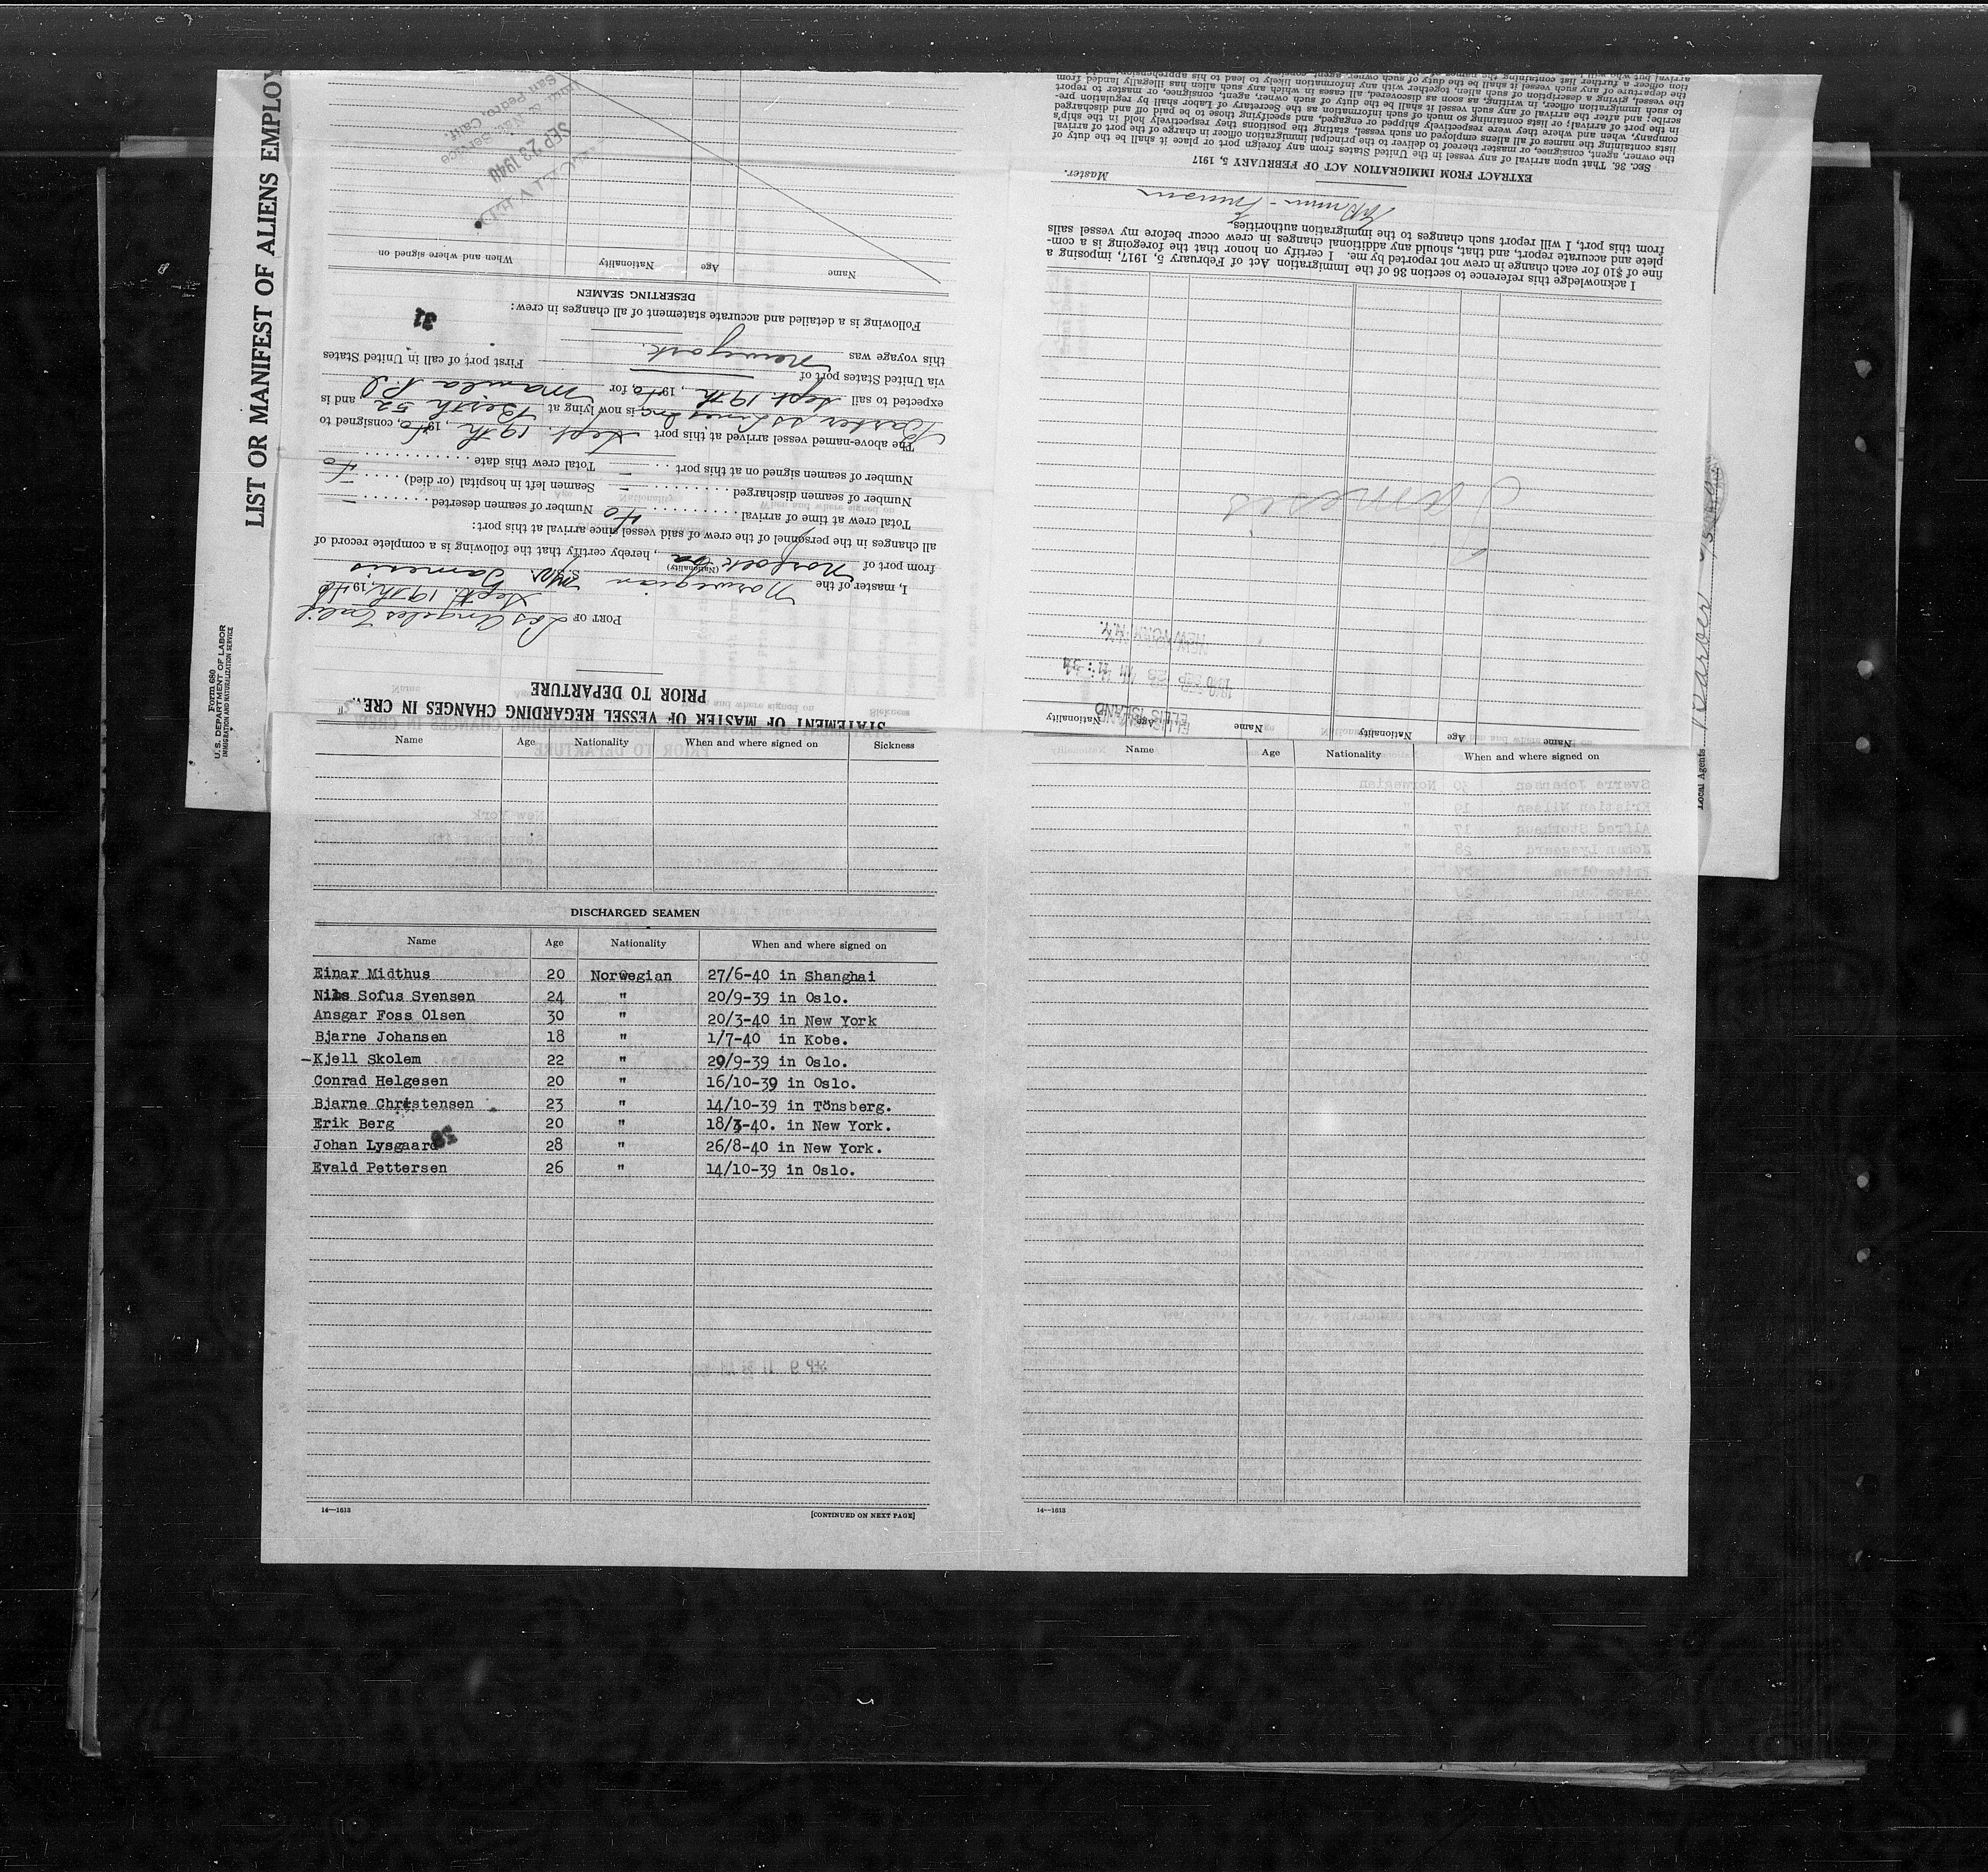 LIST OR MANIFEST OF ALIENS EMPLOY
Form 680
U.S. DEPARTMENT OF LABOR
IMMIGRATION AND NATURALIZATION SERVICE
STATEMENT OF MASTER OF VESSEL REGARDING CHANGES IN CREW
PRIOR TO DEPARTURE
PORT OF Los Angeles Calif
Sept. 19th, 1940
I, master of the Norwegian M/S. Tamesis
(Nationality)
from port of Norfolk Va, hereby certify that the following is a complete record of
all changes in the personnel of the crew of said vessel since arrival at this port:
Total crew at time of arrival 40 Number of seamen deserted –
Number of seamen discharged – Seamen left in hospital (or died) –
Number of seamen signed on at this port – Total crew this date 40
The above-named vessel arrived at this port Sept. 19th, 1940, consigned to
is now lying at Berth 52 and is
expected to sail Sept 19th, 1940, for Manila P.I
via United States port of
First port of call in United States
this voyage was Newyork.
31
Following is a detailed and accurate statement of all changes in crew:
DESERTING SEAMEN
Name Age Nationality When and where signed on
SEP 23 1940
San Pedro, Calif.
Name Age Nationality Name Age Nationality
ELLIS ISLAND
1940 SEP 25 AM 11:34
NEW YORK, N.Y.
Tamesis
I acknowledge this reference to section 36 of the Immigration Act of February 5, 1917, imposing a
fine of $10 for each change in crew not reported by me. I certify on honor that the foregoing is a com-
plete and accurate report, and that, should any additional changes in crew occur before my vessel sails
from this port, I will report such changes to the immigration authorities.
Master.
EXTRACT FROM IMMIGRATION ACT OF FEBRUARY 5, 1917
SEC. 36. That upon arrival of any vessel in the United States from any foreign port or place it shall be the duty of
the owner, agent, consignee, or master thereof to deliver to the principal immigration officer in charge of the port of arrival
lists containing the names of all aliens employed on such vessel, stating the positions they respectively hold in the ship's
company, when and where they were respectively shipped or engaged, and specifying those to be paid off and discharged
in the port of arrival; or lists containing so much of such information as the Secretary of Labor shall by regulation pre-
scribe; and after the arrival of any such vessel it shall be the duty of such owner, agent, consignee, or master to report
to such immigration officer, in writing, as soon as discovered, all cases in which any such alien has illegally landed from
the vessel, giving a description of such alien, together with any information likely to lead to his apprehension;
Local Agents
Name Age Nationality When and where signed on Sickness
DISCHARGED SEAMEN
Name Age Nationality When and where signed on
Einar Midthus 20 Norwegian 27/6-40 in Shanghai
Nils Sofus Svensen 24 " 20/9-39 in Oslo.
Ansgar Foss Olsen 30 " 20/3-40 in New York
Bjarne Johansen 18 " 1/7-40 in Kobe.
-Kjell Skolem 22 " 20/9-39 in Oslo.
Conrad Helgesen 20 " 16/10-39 in Oslo.
Bjarne Christensen 23 " 14/10-39 in Tönsberg.
Erik Berg 20 " 18/3-40. in New York.
Johan Lysgaard 28 " 26/8-40 in New York.
Evald Pettersen 26 " 14/10-39 in Oslo.
14—1613
[CONTINUED ON NEXT PAGE]
Name Age Nationality When and where signed on
14—1613